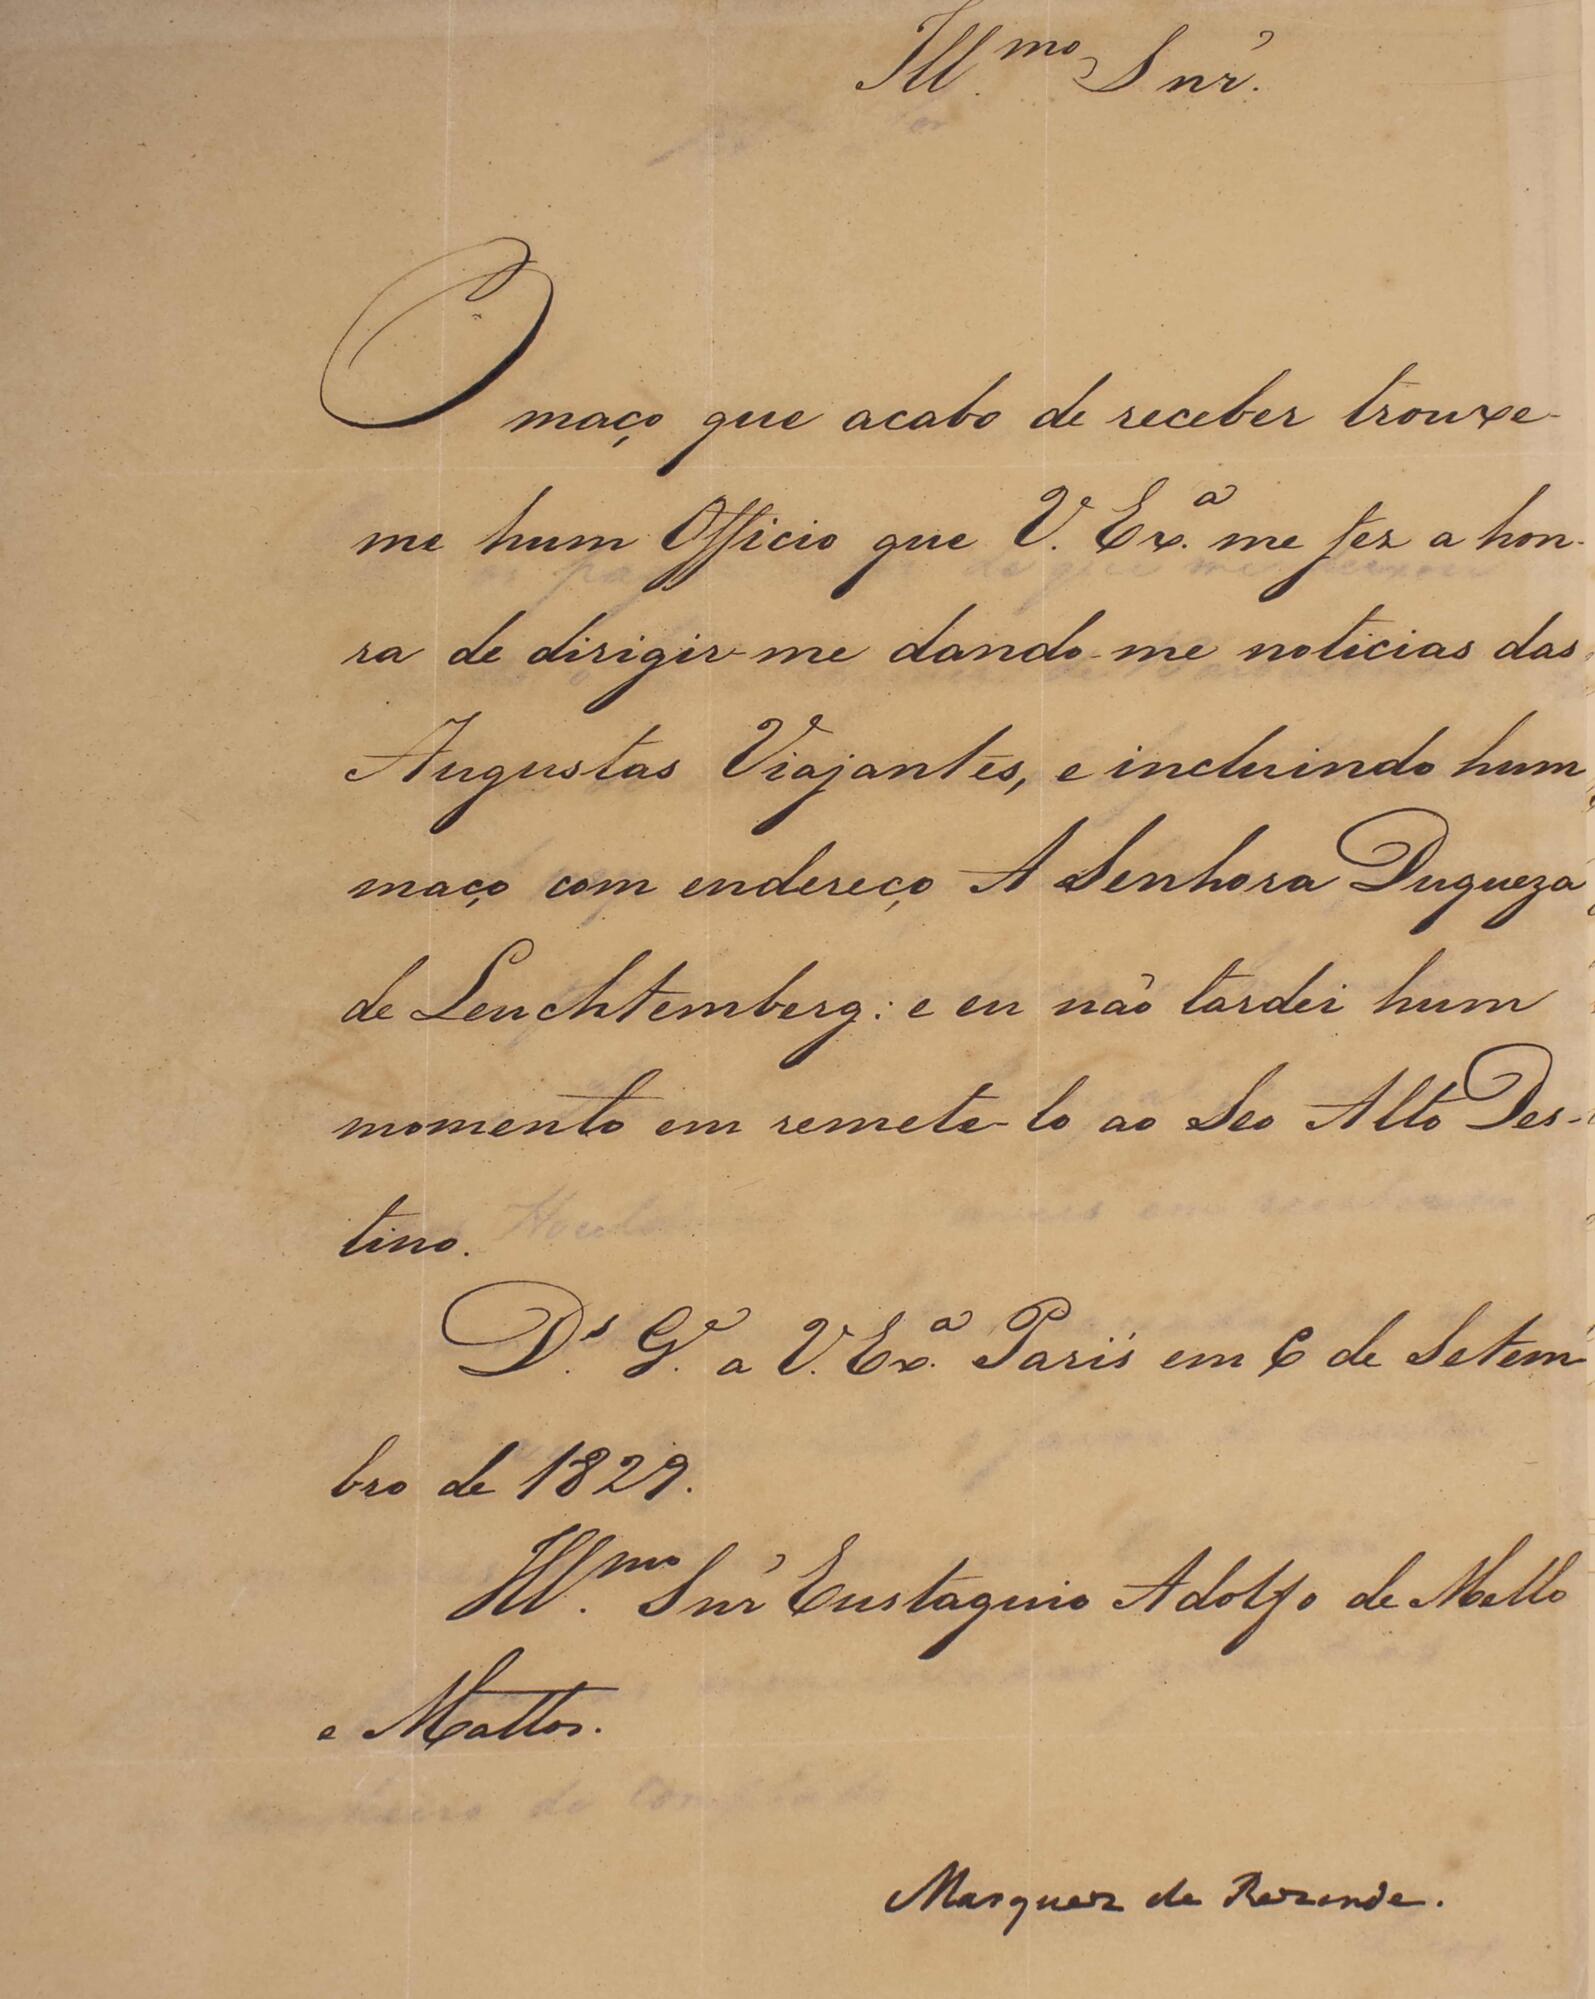 Ill.mo Snr.
O maço que acabo de receber trouxe-
me hum Officio que V. Ex.a me fez a hon-
ra de dirigir-me dando-me noticias das
Augustas Viajantes, e incluindo hum
maço com endereço A Senhora Duqueza
de Leuchtemberg: e eu não tardei hum
momento em remete-lo ao Seo Alto Des-
tino.
D.s G.e a V. Ex.a Paris em 6 de Setem-
bro de 1829.
Ill.mo Snr Eustaquio Adolfo de Mello
e Mattos.
Marquez de Rezende.